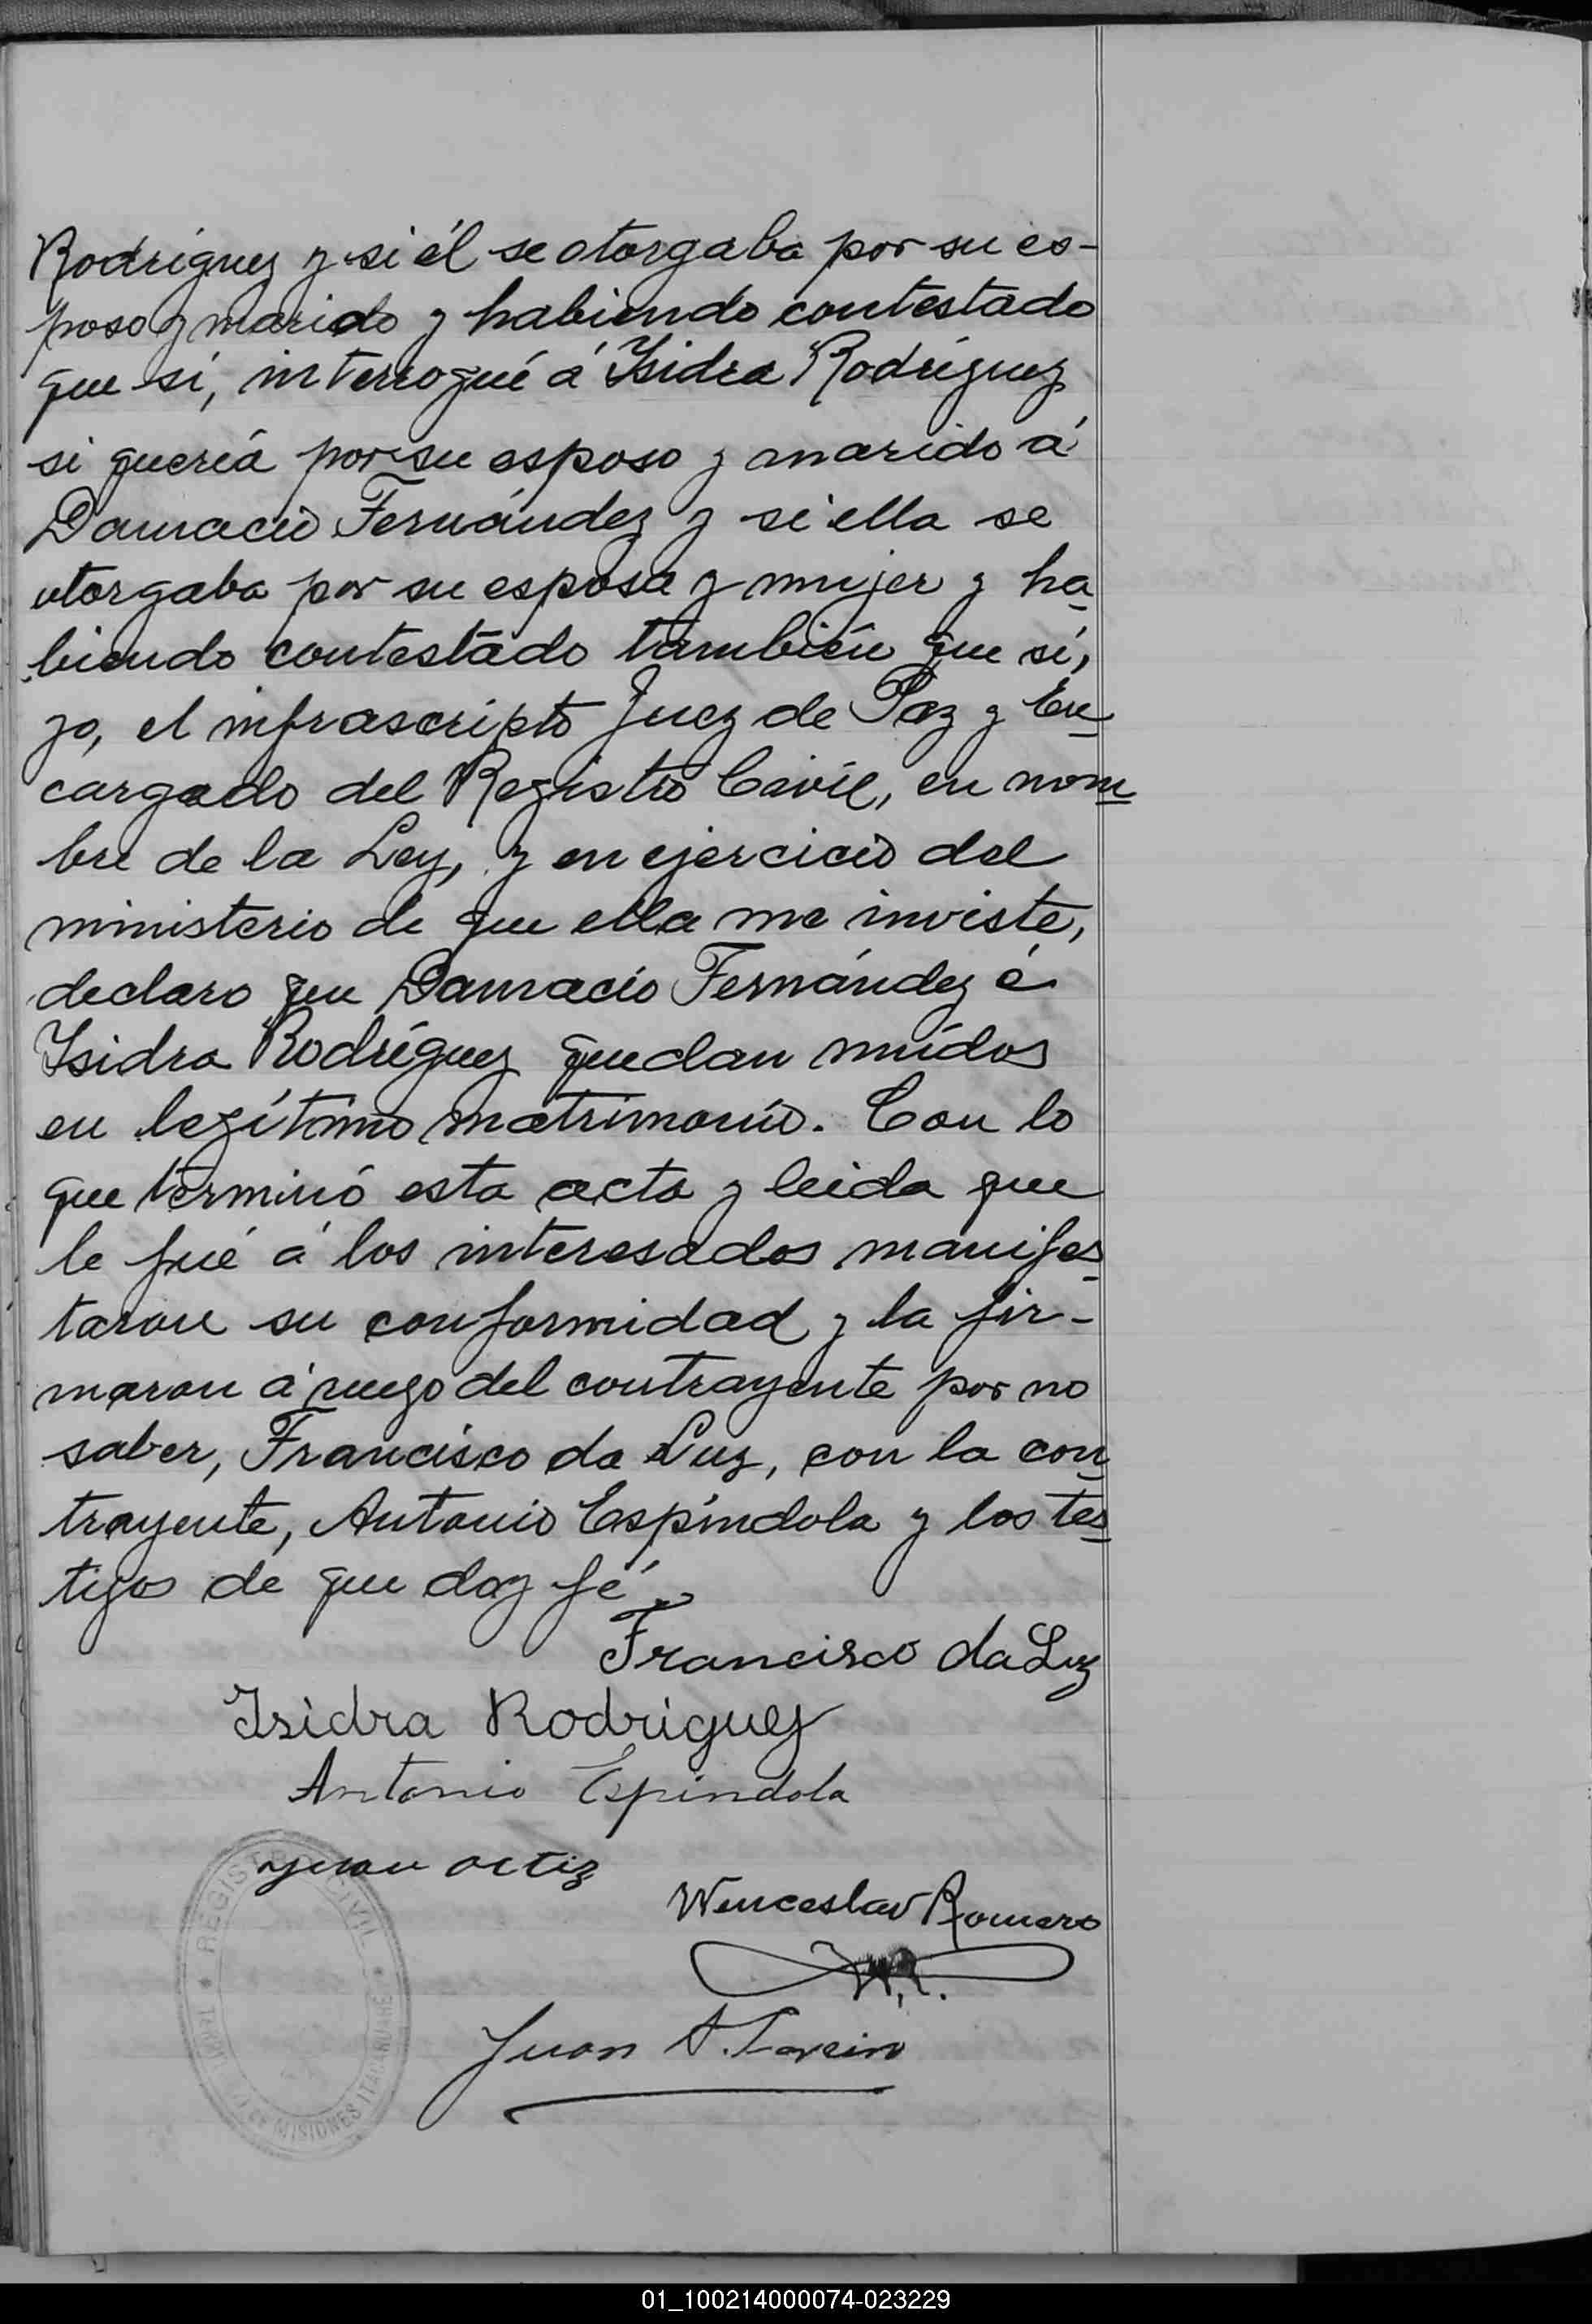 Rodríguez y si él se otorgaba por su es-
poso y marido y habiendo contestado
que sí, interrogué á Isidra Rodríguez
si quería por su esposo y marido á
Damacio Fernández y si ella se
otorgaba por su esposa y mujer y ha-
biendo contestado también que sí,
yo, el infrascripto Juez de Paz y En-
cargado del Registro Civil, en nom-
bre de la Ley, y en ejercicio del
ministerio de que ella me inviste,
declaro que Damacio Fernández é
Isidra Rodríguez quedan unídos
en legítimo matrimonio. Con lo
que terminó esta acta y leida que
le fué á los interesados manifes-
taron su conformidad y la fir-
maron á ruego del contrayente por no
saber, Francisco da Luz, con la con-
trayente, Antonio Espíndola y los tes-
tigos de que doy fé.
Francisco da Luz
Isidra Rodriguez
Antonio Espindola
Juan Ortiz
Wenceslao Romero
W.R.
Juan A.
REGISTRO CIVIL
MISIONES ITACARUARE
01_100214000074-023229